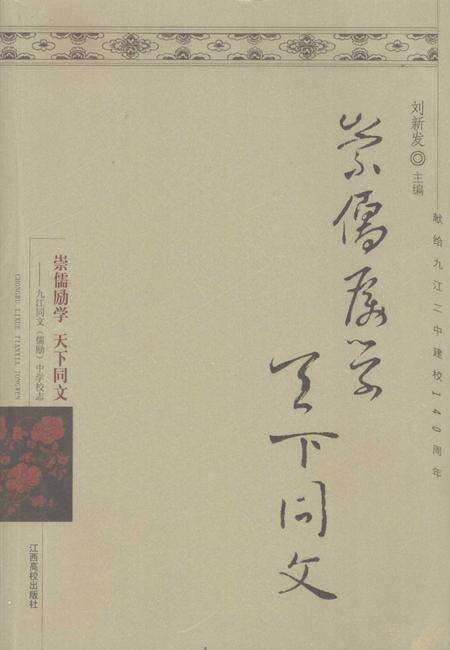 献给九江二中建校140周年
刘新发◎主编
崇儒励学
天下同文
崇儒励学 天下同文
——九江同文（儒励）中学校志
CHONGRU LIXUE TIANXIA TONGWEN
江西高校出版社